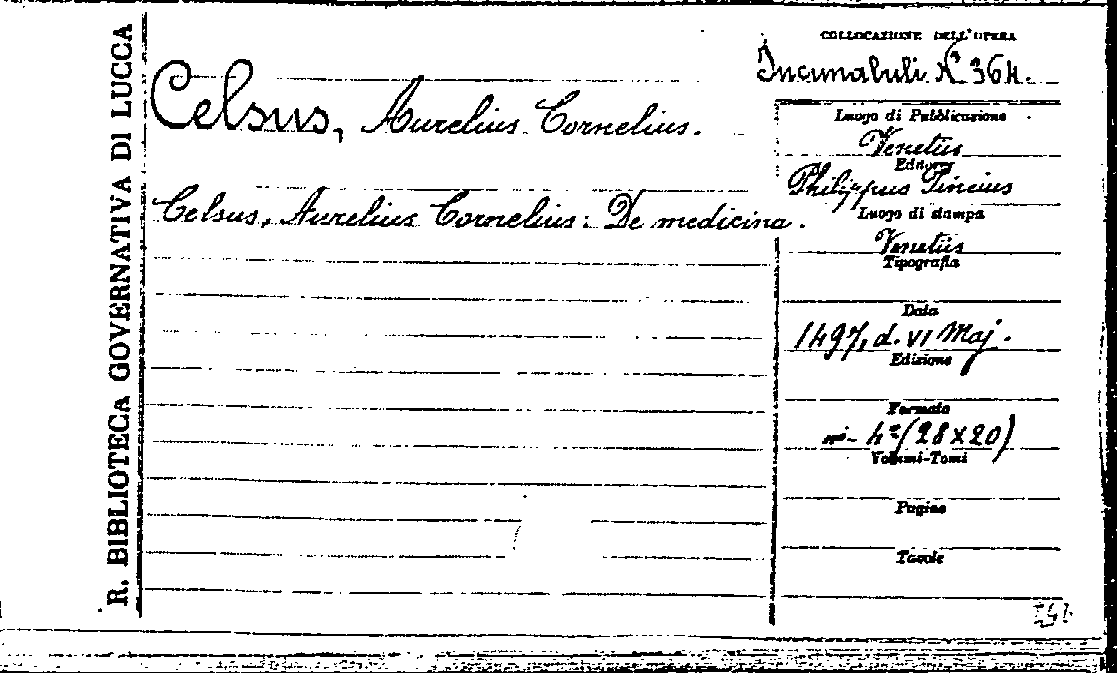 R. BIBLIOTECA GOVERNATIVA DI LUCCA
Celsus, Aurelius Cornelius.
Celsus, Aurelius Cornelius: De medicina.
COLLOCAZIONE DELL'OPERA
Incunabuli N° 364.
Luogo di Pubblicazione
Venetiis
Editore
Philippus Pincius
Luogo di stampa
Venetiis
Tipografia
Data
1497, d. VI Maj.
Edizione
Formato
in- 4° (28x20)
Volumi-Tomi
Pagine
Tavole